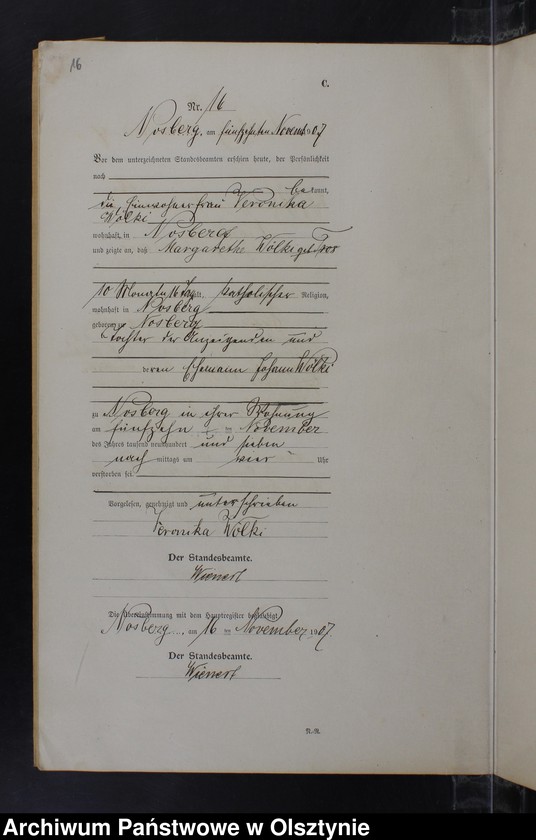 16
C.
Nr. 16
Nosberg, am fünfzehnten Novemb. 1907
Vor dem unterzeichneten Standesbeamten erschien heute, der Persönlichkeit
nach
bekannt,
die Einwohnerfrau Veronika
Wölki
wohnhaft in Nosberg
und zeigte an, daß Margarethe Wölki geb.
10 Monate 16 Tag alt, katholischer Religion,
wohnhaft in Nosberg
geboren zu Nosberg
Tochter der Anzeigenden und
deren Ehemann Johann Wölki
zu Nosberg in ihrer Wohnung
am fünfzehn ten November
des Jahres tausend neunhundert und sieben
nach mittags um vier Uhr
verstorben sei.
Vorgelesen, genehmigt und unterschrieben
Veronika Wölki
Der Standesbeamte.
Wienert
Die Übereinstimmung mit dem Hauptregister beglaubigt
Nosberg, am 16 ten November 1907.
Der Standesbeamte.
Wienert
Archiwum Państwowe w Olsztynie